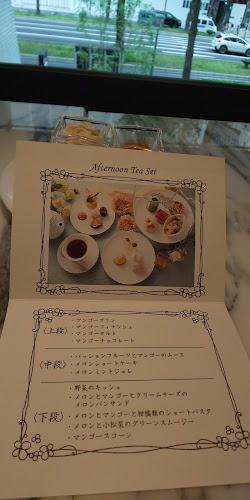 Afternoon Tea Set
(上段)
・マンゴープリン
・マンゴーフィナンシェ
・マンゴータルト
・マンゴーチョコレート
(中段)
・パッションフルーツとマンゴーのムース
・メロンショートケーキ
・メロンミントジュレ
(下段)
・野菜のキッシュ
・メロンとマンゴーとクリームチーズの
メロンパンサンド
・メロンとマンゴーと柑橘類のショートパスタ
・メロンと小松菜のグリーンスムージー
・マンゴースコーン